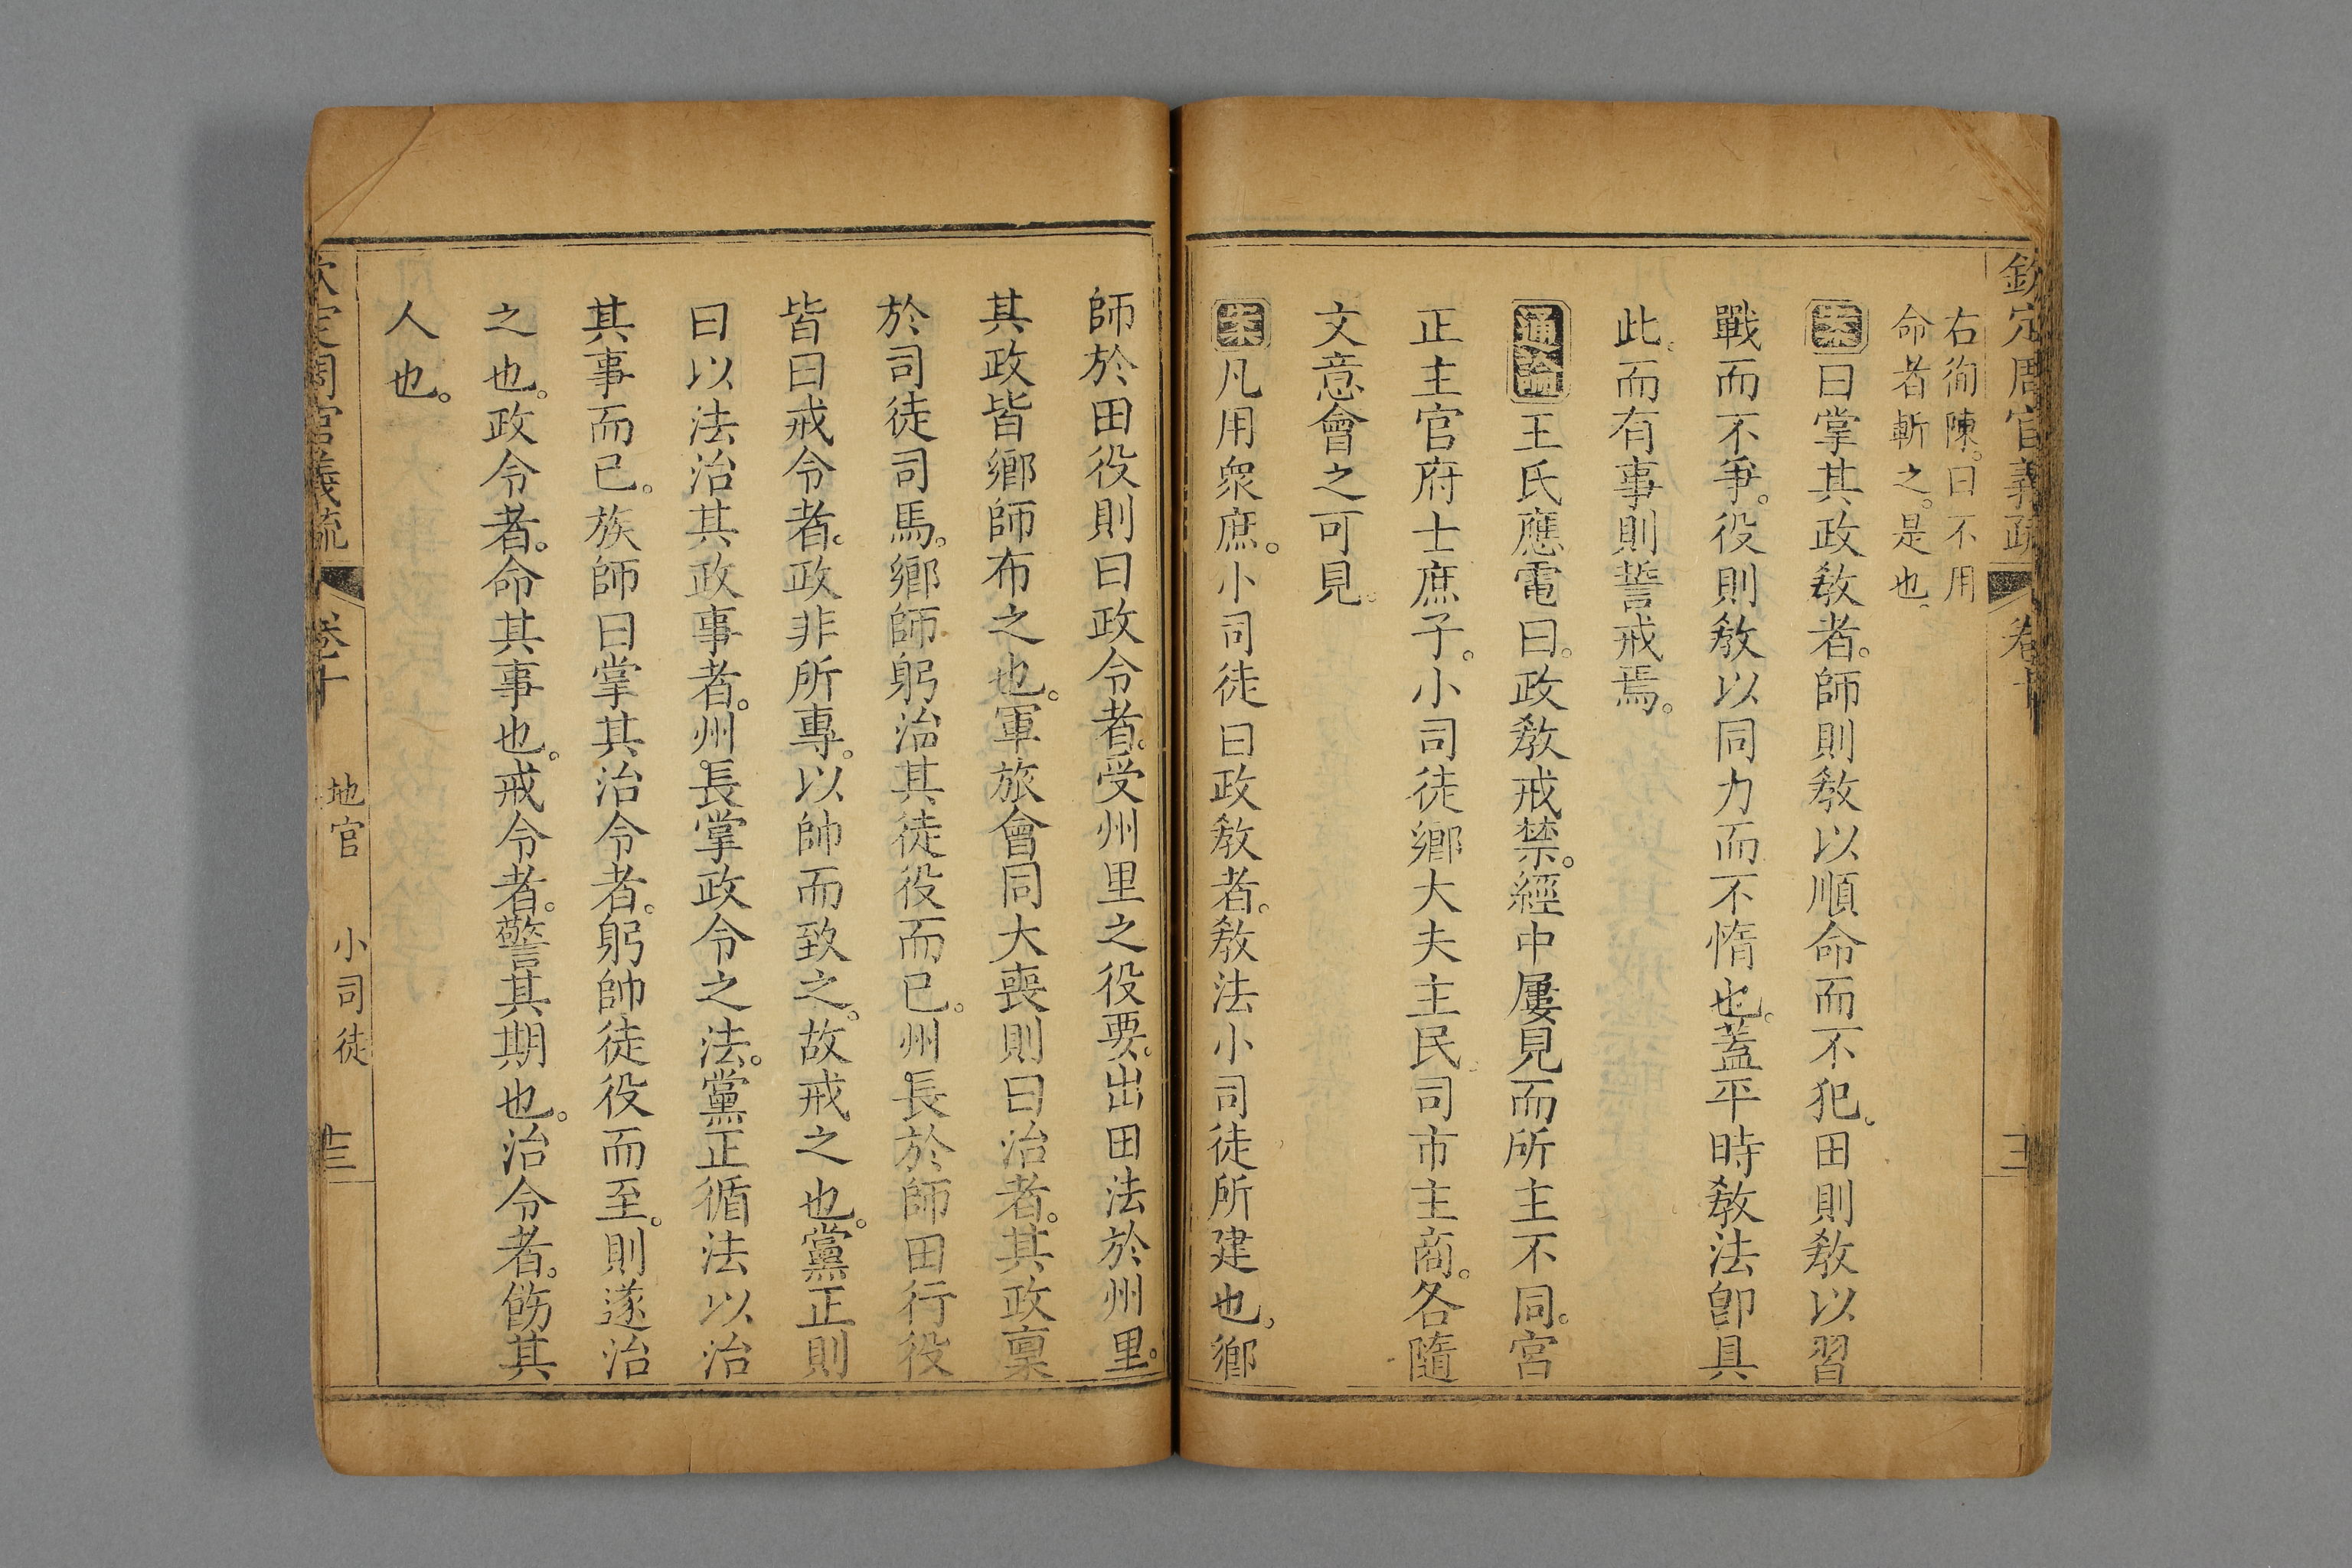 欽定周官義疏 卷十
右徇陳。曰不用
命者斬之。是也。
案曰掌其政敎者。師則敎以順命而不犯。田則敎以習
戰而不爭。役則敎以同力而不惰也。蓋平時敎法卽具
此。而有事則誓戒焉。
通論王氏應電曰。政敎戒禁。經中屢見而所主不同。宮
正主官府士庶子。小司徒鄉大夫主民。司市主商。各隨
文意會之可見。
案凡用眾庶。小司徒曰政敎者。敎法小司徒所建也。鄉
師於田役則曰政令者。受州里之役要。出田法於州里。
其政皆鄉師布之也。軍旅會同大喪則曰治者。其政稟
於司徒司馬。鄉師躬治其徒役而已。州長於師田行役
皆曰戒令者。政非所專。以帥而致之。故戒之也。黨正則
曰以法治其政事者。州長掌政令之法。黨正循法以治
其事而已。族師曰掌其治令者。躬帥徒役而至。則遂治
之也。政令者。命其事也。戒令者。警其期也。治令者。飭其
人也。
欽定周官義疏 卷十 地官 小司徒